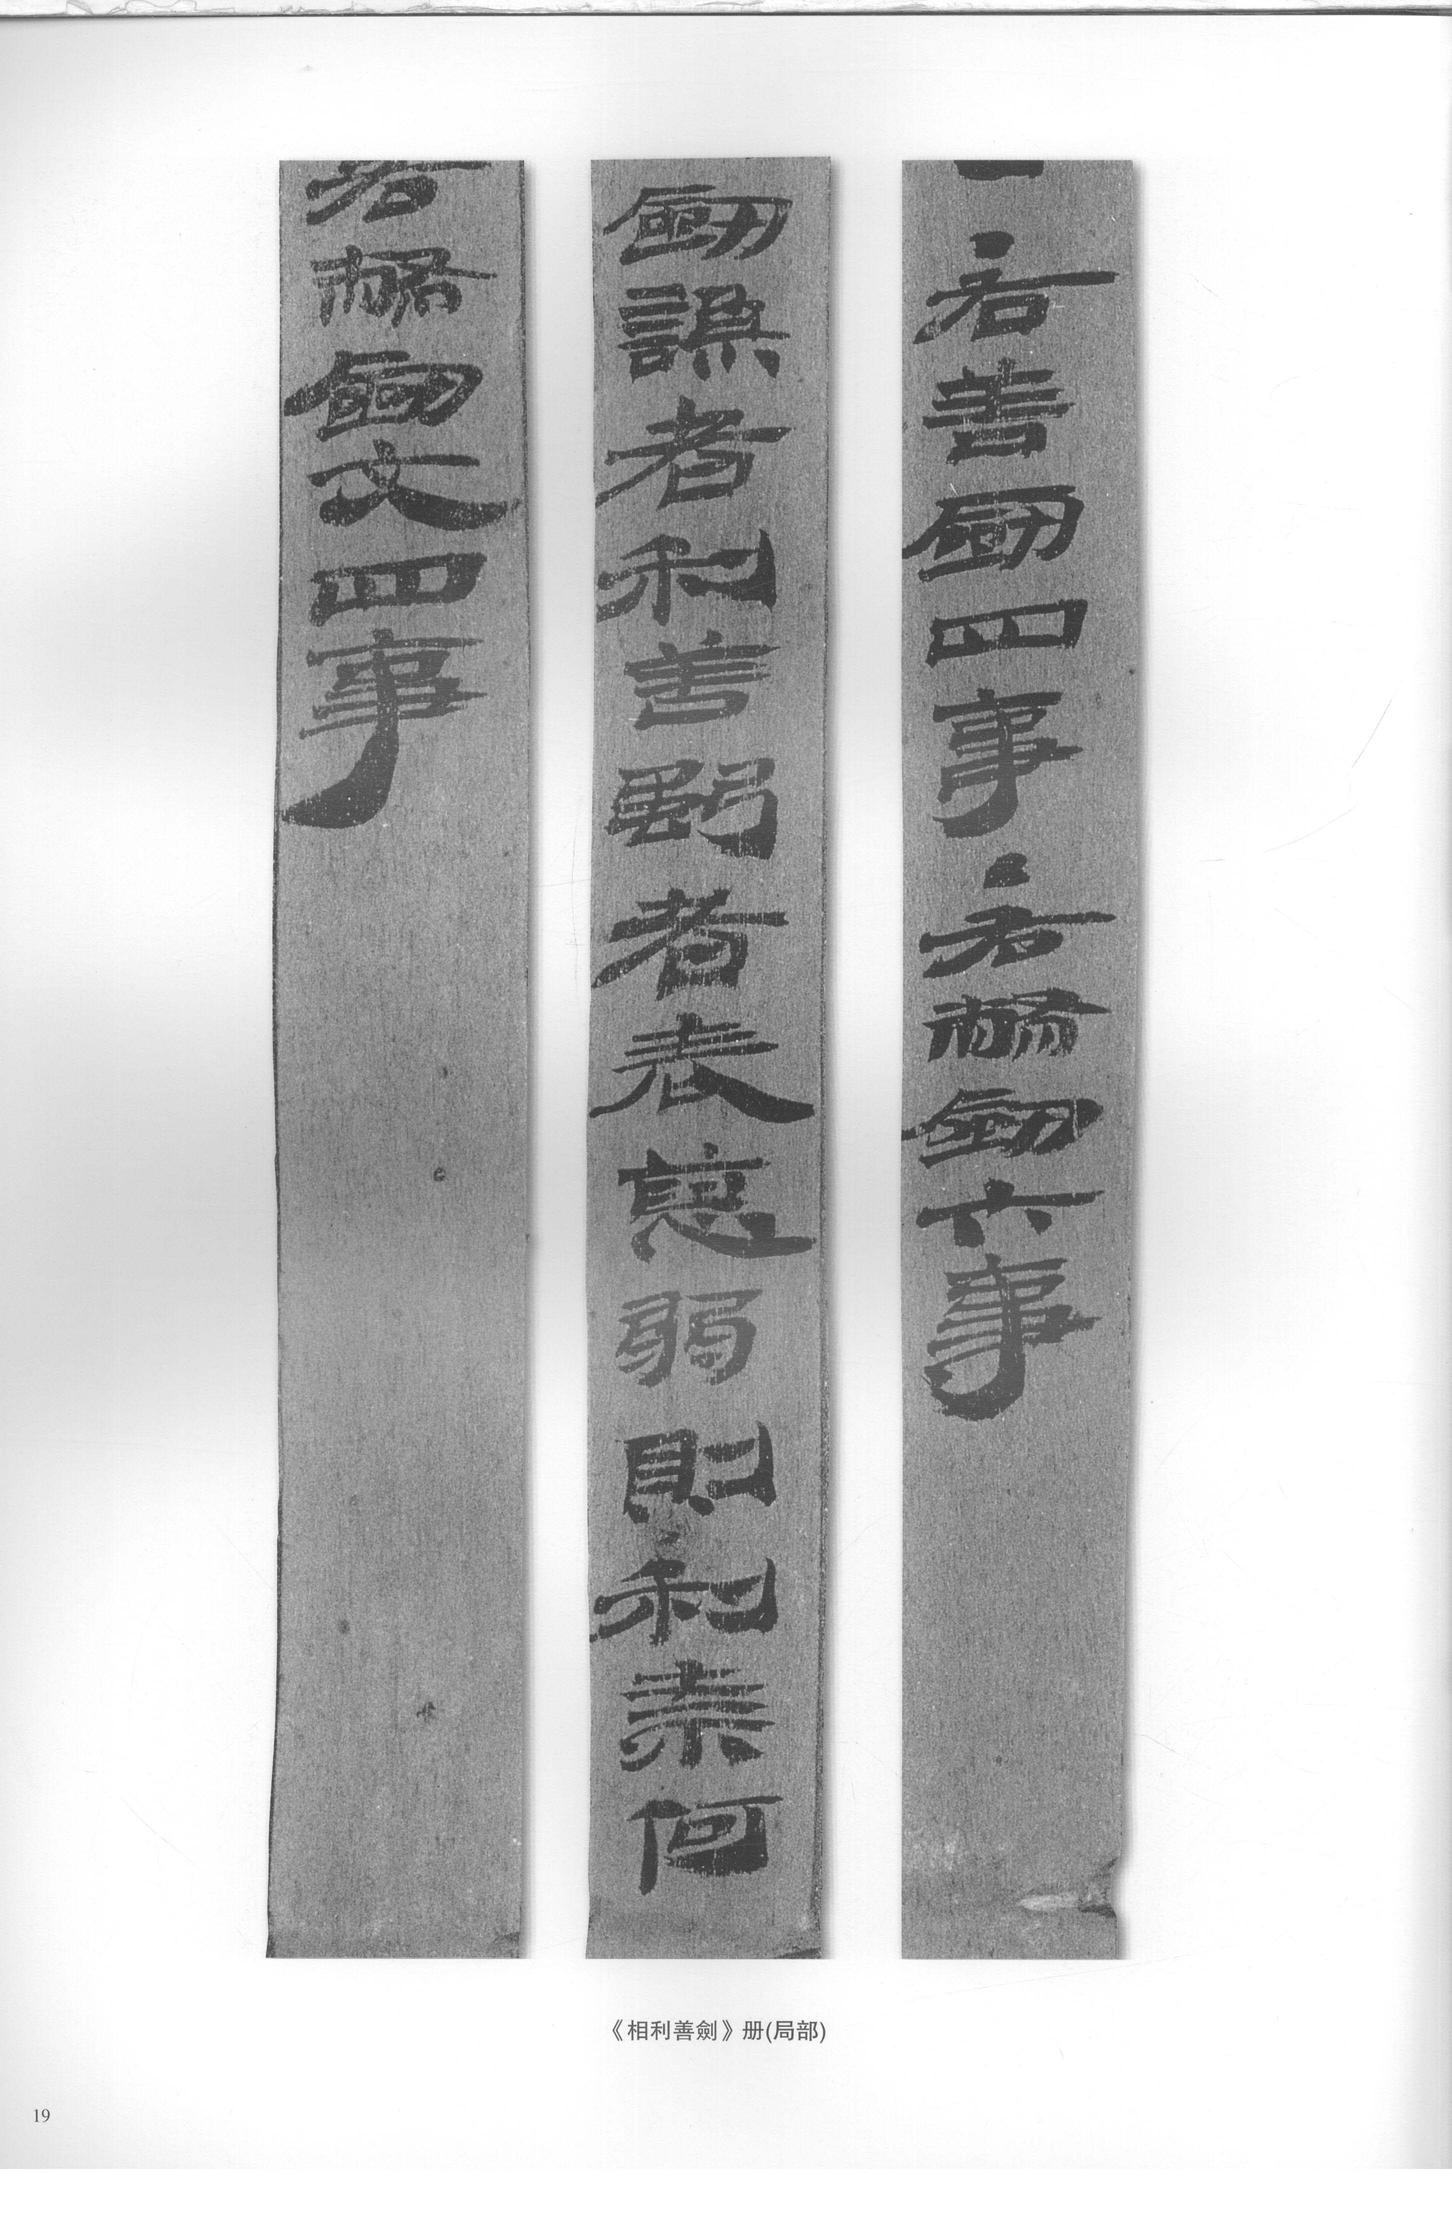 ·右善劍四事·右幣劍六事
劍謙者利善強者表恙弱則利奈何
右幣劍文四事
《相利善劍》册(局部)
19